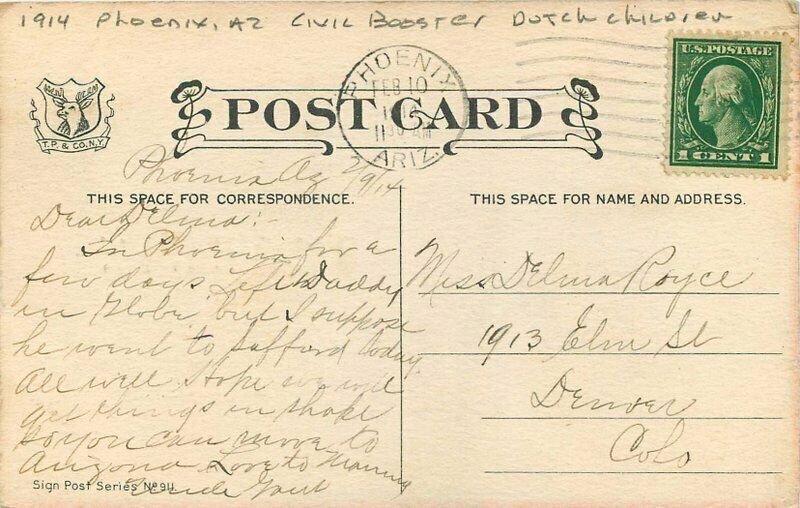 1914 Phoenix, AZ Civil Booster Dutch Children
U.S. POSTAGE
1 CENT 1
PHOENIX
FEB 10
11 30 AM
ARIZ.
T.P. & CO. N.Y.
POST CARD
THIS SPACE FOR CORRESPONDENCE.
THIS SPACE FOR NAME AND ADDRESS.
Phoenix Az 2/9/14
Dear Delma:-
In Phoenix for a
few days Left Daddy
in Globe but I suppose
he went to Safford today.
All well Hope we will
get things in shake
so you can move to
Arizona Love to
Miss Delma Royce
1913 Elm St
Denver
Colo
Sign Post Series No 911.